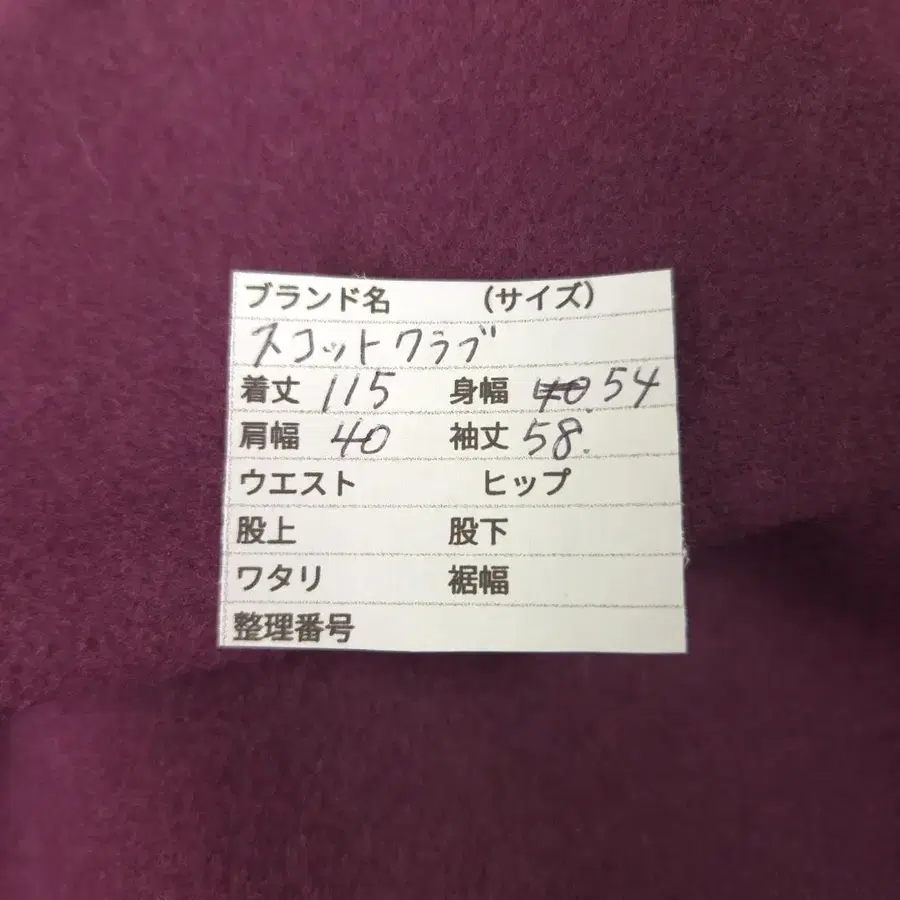 ブランド名 (サイズ)
スコットクラブ
着丈 115 身幅 40. 54
肩幅 40 袖丈 58.
ウエスト ヒップ
股上 股下
ワタリ 裾幅
整理番号